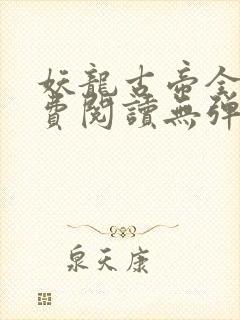 妖龍古帝全
費閱讀無彈
泉天康